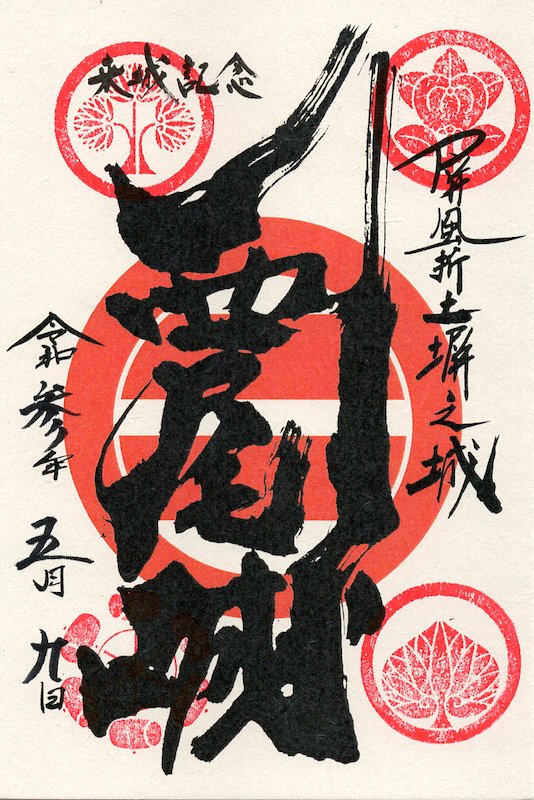 屏風折土塀之城
来城記念
西尾城
令和参年 五月 九日